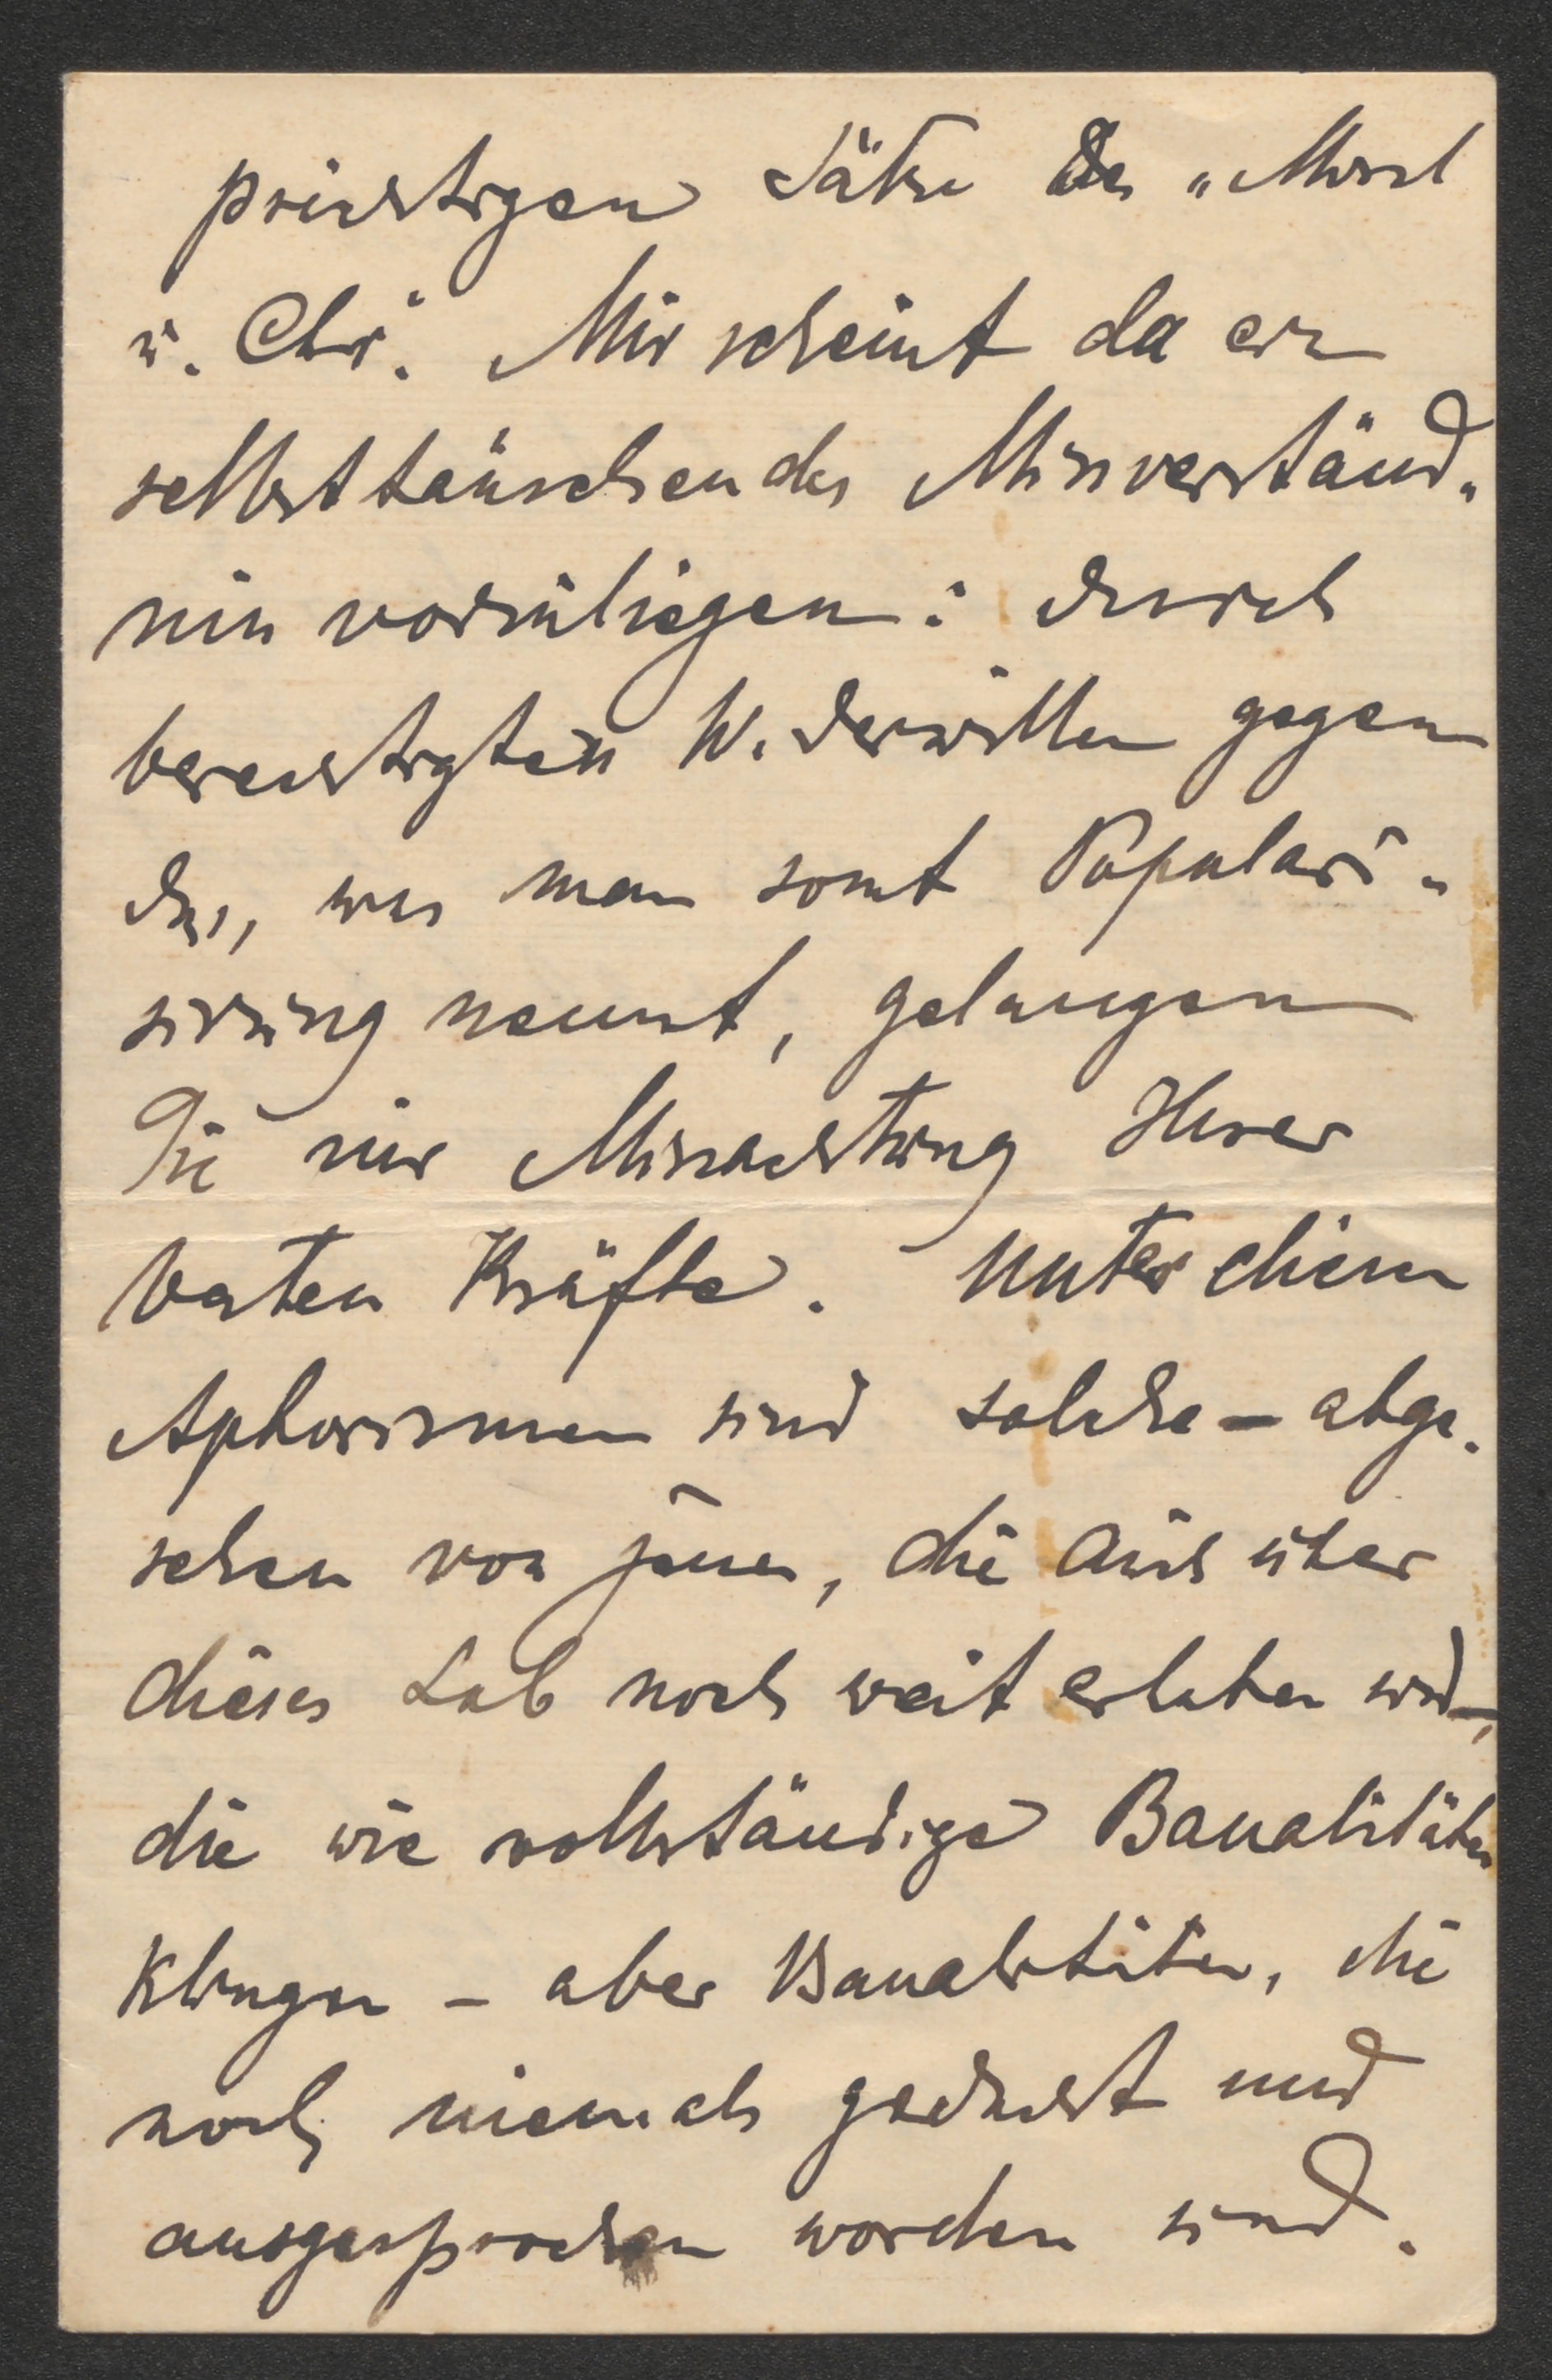 prächtigen Sätze der „Moral
u. Chr.“ Mir scheint da ein
selbsttäuschendes Missverständ-
nis vorzuliegen: durch
berechtigten Widerwillen gegen
das, was man sonst Populari-
sirung nennt, gelangen
Sie zur Missachtung Ihrer
besten Kräfte. Unter diesen
Aphorismen sind solche – abge-
sehen von jenen, die auch über
dieses Lob noch weit erhaben sind –,
die wie vollständige Banalitäten
klingen – aber Banalitäten, die
noch niemals gedacht und
ausgesprochen worden sind.